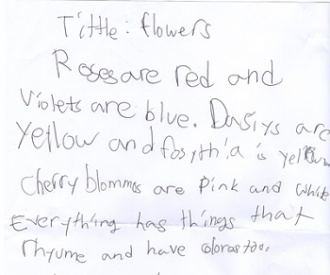 Tittle: flowers
Roses are red and
Violets are blue. Dasiys are
Yellow and fosythia is yellow
Cherry blommes are Pink and white
Everything has things that
rhyume and have colors too.